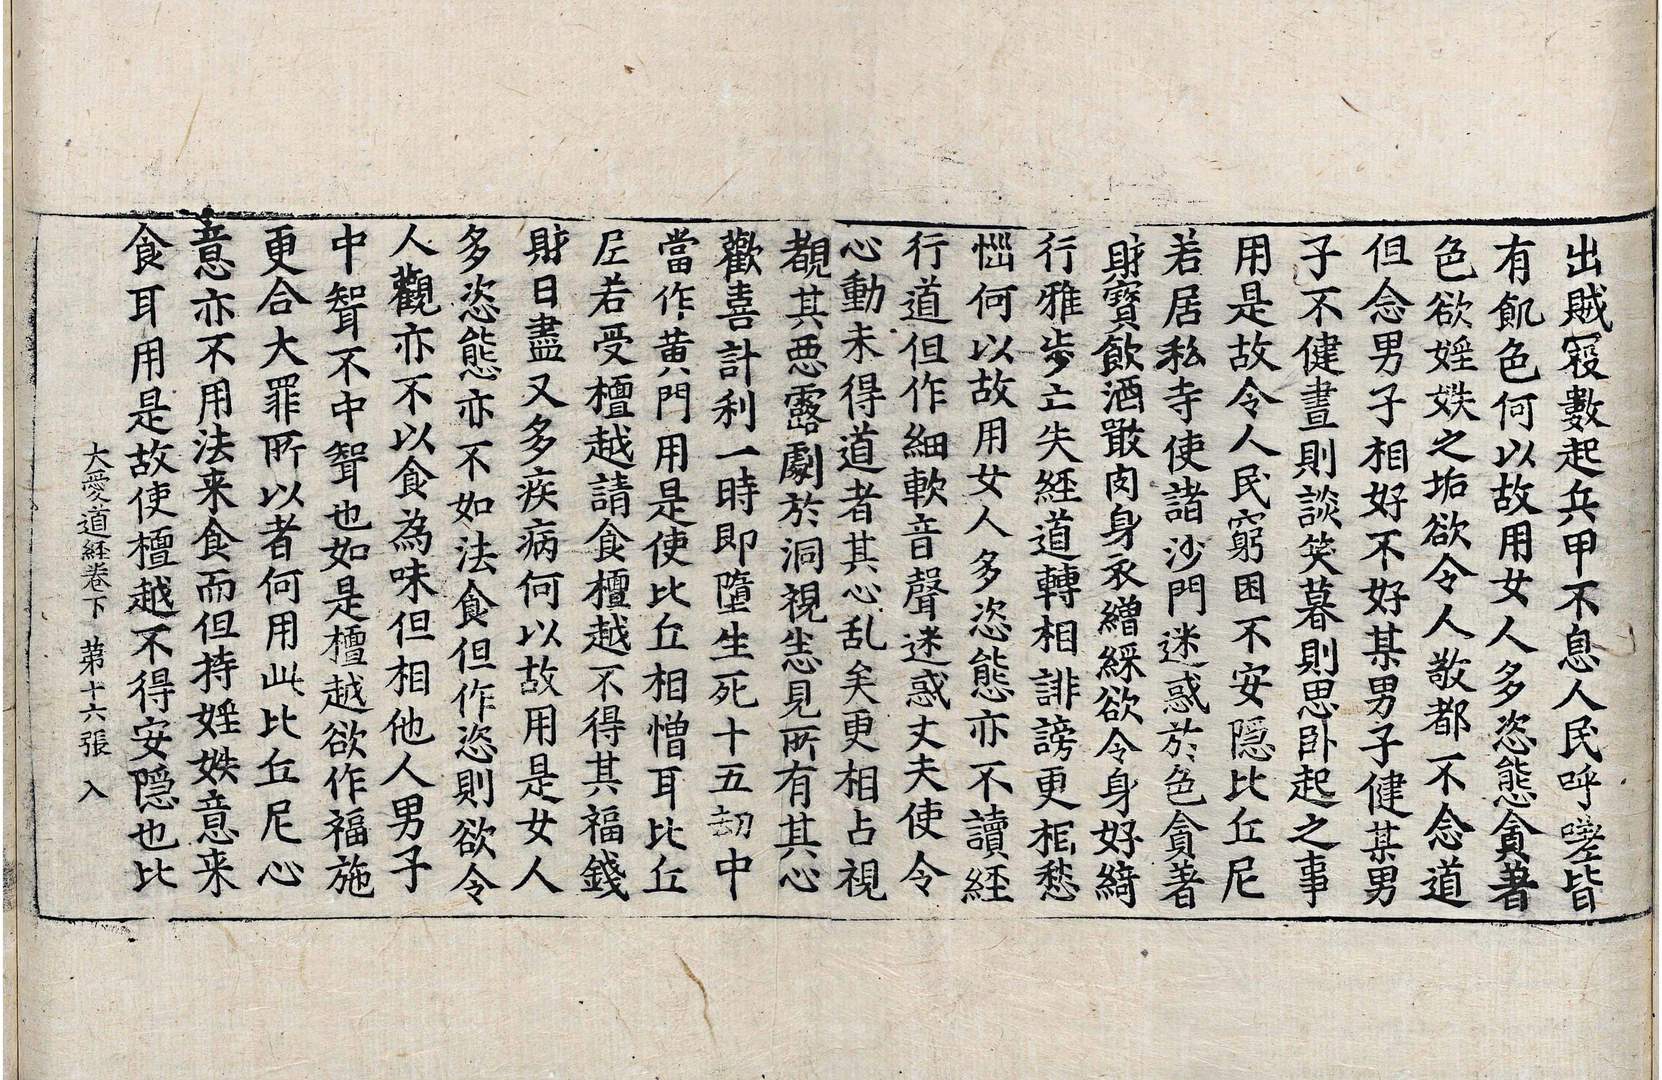 出賊寇數起兵甲不息人民呼嗟皆
有飢色何以故用女人多恣態貪著
色欲婬妷之垢欲令人敬都不念道
但念男子相好不好某男子健某男
子不健晝則談笑暮則思臥起之事
用是故令人民窮困不安隱比丘尼
若居私寺使諸沙門迷惑於色貪著
財寶飲酒噉肉身衣繒綵欲令身好綺
行雅步亡失經道轉相誹謗更相愁
惱何以故用女人多恣態亦不讀經
行道但作細軟音聲迷惑丈夫使令
心動未得道者其心乱矣更相占視
覩其惡露劇於洞視恙見所有其心
歡喜計利一時即墮生死十五劫中
當作黃門用是使比丘相憎耳比丘
尼若受檀越請食檀越不得其福錢
財日盡又多疾病何以故用是女人
多恣態亦不如法食但作恣則欲令
人觀亦不以食為味但相他人男子
中聟不中聟也如是檀越欲作福施
更合大罪所以者何用此比丘尼心
意亦不用法来食而但持婬妷意来
食耳用是故使檀越不得安隱也比
大愛道經卷下 第十六張 入